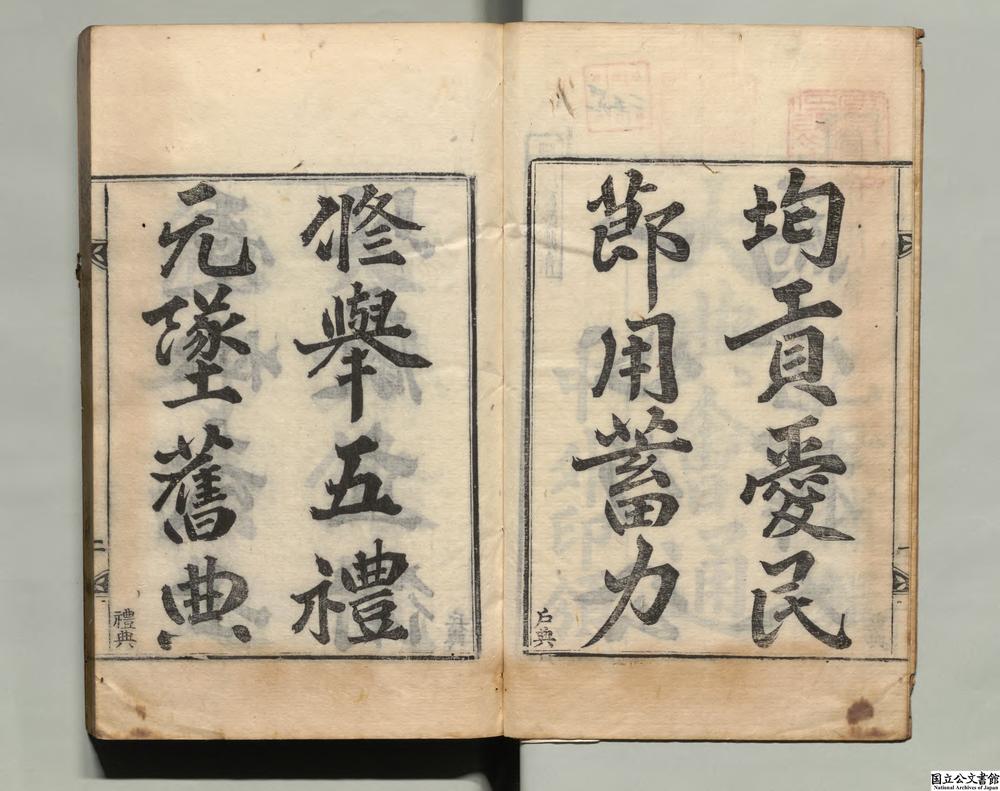 均貢愛民
節用蓄力
戶典
修舉五禮
无墜舊典
禮典
国立公文書館
National Archives of Japan